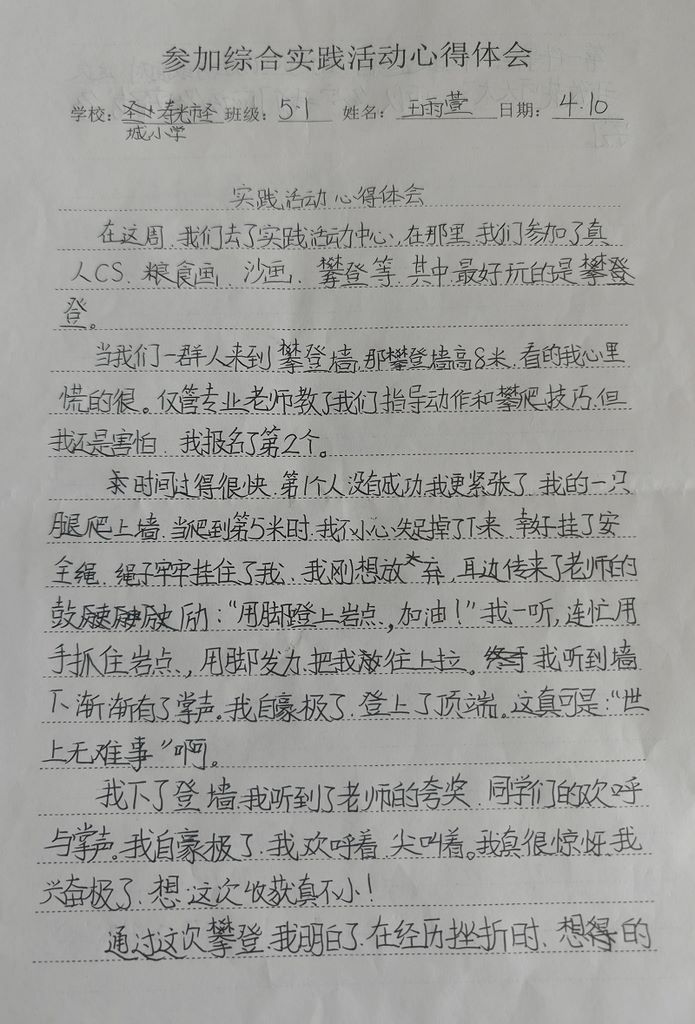 参加综合实践活动心得体会
学校: 寿光市圣 班级: 5.1 姓名: 王雨萱 日期: 4.10
城小学
实践活动心得体会
在这周,我们去了实践活动中心,在那里,我们参加了真
人CS、粮食画、沙画、攀登等,其中最好玩的是攀登
登。
当我们一群人来到攀登墙,那攀登墙高8米,看的我心里
慌的很。仅管专业老师教了我们指导动作和攀爬技巧,但
我还是害怕,我报名了第2个。
时间过得很快,第1个人没有成功,我更紧张了,我的一只
腿爬上墙,当爬到第5米时,我不小心失足掉了下来,幸好挂了安
全绳,绳子牢牢挂住了我,我刚想放弃,耳边传来了老师的
鼓励:“用脚蹬上岩点,加油!”我一听,连忙用
手抓住岩点,用脚发力,把我往上拉。我听到墙
下渐渐有了掌声。我自豪极了,登上了顶端。这真可是:“世
上无难事”啊。
我下了登墙,我听到了老师的夸奖,同学们的欢呼
与掌声。我自豪极了,我欢呼着,尖叫着。我真很惊讶,我
兴奋极了,想:这次收获真不小!
通过这次攀登,我明白了,在经历挫折时,想得的